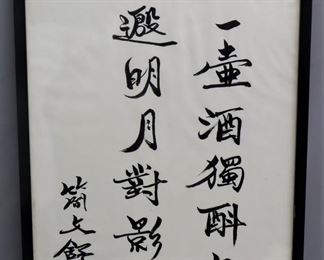 一壺酒獨酌
邀明月對影
簡文舒